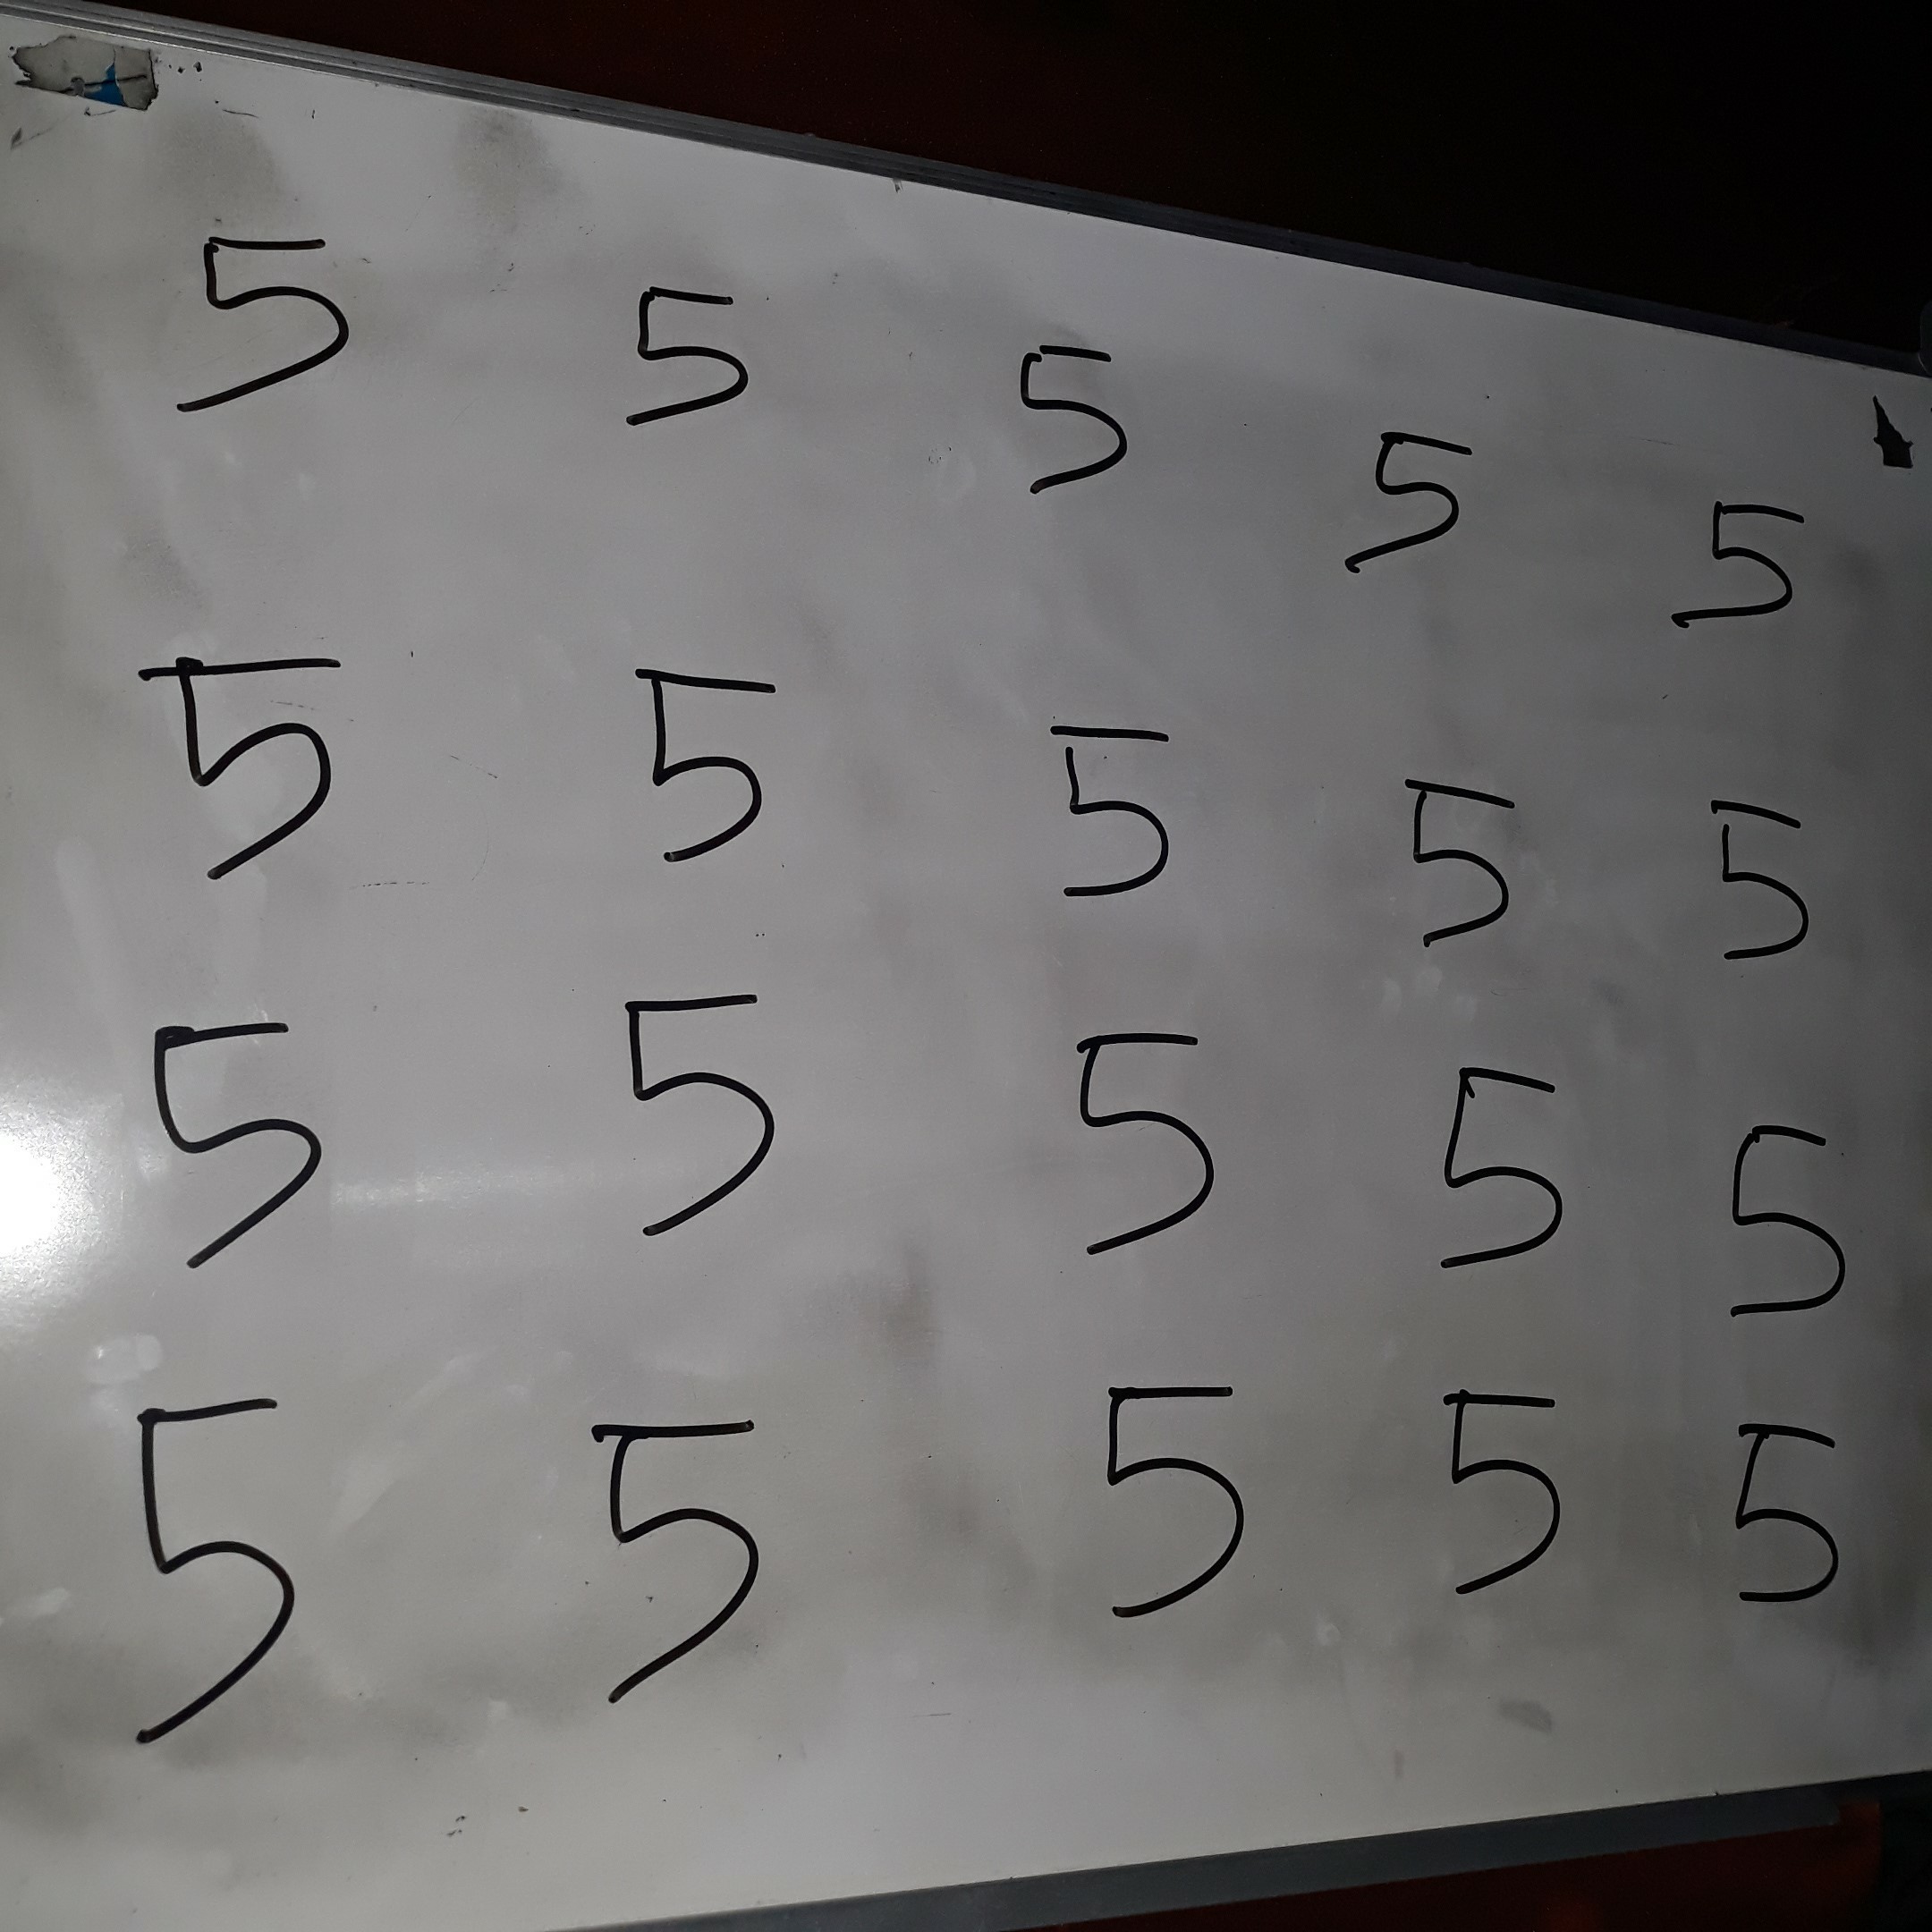 5 5 5 5 5
5 5 5 5 5
5 5 5 5 5
5 5 5 5 5